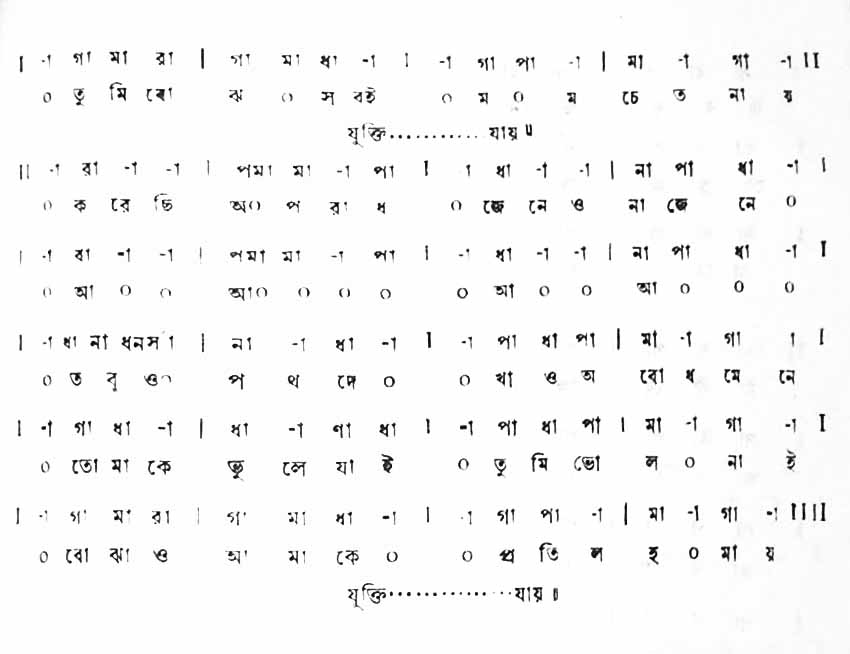 I -া গা মা রা | গা মা ধা -া I -া গা পা -া | মা -া গা -া II
০ তু মি বো ঝ ০ স বই ০ ম ০ ম চে ত না য়
যুক্তি............যায়॥
II -া রা -া -া | পমা মা -া পা I -া ধা -া -া | না পা ধা -া I
০ ক রে ছি অ০ প রা ধ ০ জে নে ও না জে নে ০
I -া রা -া -া | পমা মা -া পা I -া ধা -া -া | না পা ধা -া I
০ আ ০ ০ আ০ ০ ০ ০ ০ আ ০ ০ আ ০ ০ ০
I -া ধা না ধনর্সা | না -া ধা -া I -া পা ধা পা | মা -া গা া I
০ ত বু ও০ প থ দে ০ ০ খা ও অ বো ধ মে নে
I -া গা ধা -া | ধা -া ণা ধা I -া পা ধা পা | মা -া গা -া I
০ তো মা কে ভু লে যা ই ০ তু মি ভো ল ০ না ই
I -া গা মা রা | গা মা ধা -া I -া গা পা -া | মা -া গা -া IIII
০ বো ঝা ও আ মা কে ০ ০ প্র তি ল হ ০ মা য়
যুক্তি...............যায়॥